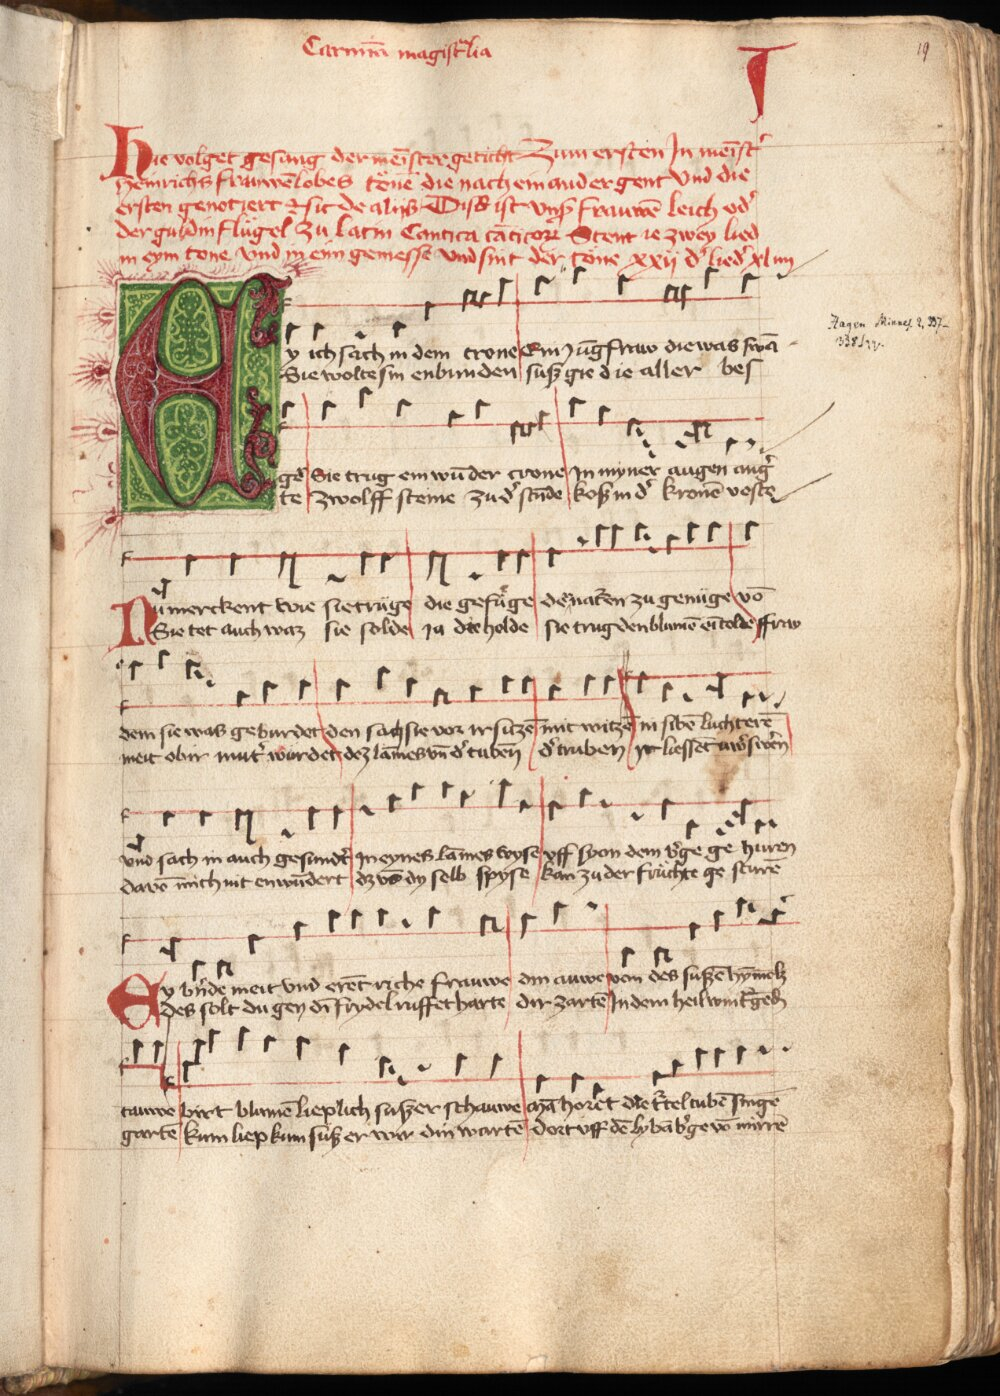 Carmīa magistͬlia
19
Hie volget gesang der meīster geticht Zum ersten In meīst᷑
Heinrichs frauwēlobes tone die nach einander gent Vnd die
ersten genotiert Et sic de alijs Diß ist vnß frauwē leich od᷑
der guldin flugel zu latin Cantica cāticoꝝ Stent ie zwey lied
in eym tone vnd in eim gemesse vnd sint der tone xxij d᷑ lied᷑ xliiij
Ey ich sach in dem trone Ein jūgfraw die was swā
Sie wolte sin enbunden suß gie die aller bes
Hagen Minnes. 2, 337–
338
ge᷑ Sie trug ein wūder crone In myner augen ang᷑
te zwolff steine zu d᷑ stūde koß in d᷑ kronē veste
Nu merckent wie sie trüge die gefüge de᷑ natē zu genüge vō
Sie tet auch waz sie solde ja die holde sie trug den blumē ei tolde ffraw
dem sie was geburdet den sach sie vor ir sitzē mit witzē in sibē luchterē
meit ob ir mut᷑ wurdet dez lāmes vn̄ d᷑ tubē d᷑ truben ir liessēt
vnd sach in auch gesundt᷑ In eynes lāmes wyse vff syon dem b᷑ge ge huren
davō mich nit enwūdert dz vō dy selb spyse kan zu der früchte ge sturē
Ey b᷑nde meit vnd erēt riche frauwe din auwe von des sußē hȳmels
Des solt du gen dī frydel ruffet harte dir zarte In dem heil wint
tauwe birt blumē lieplich sußer schauwe mā horet die t᷑teltubē singē
gartē kum liep kum suß er wir din wartē dort vff dē lybā b᷑ge vō mirrē